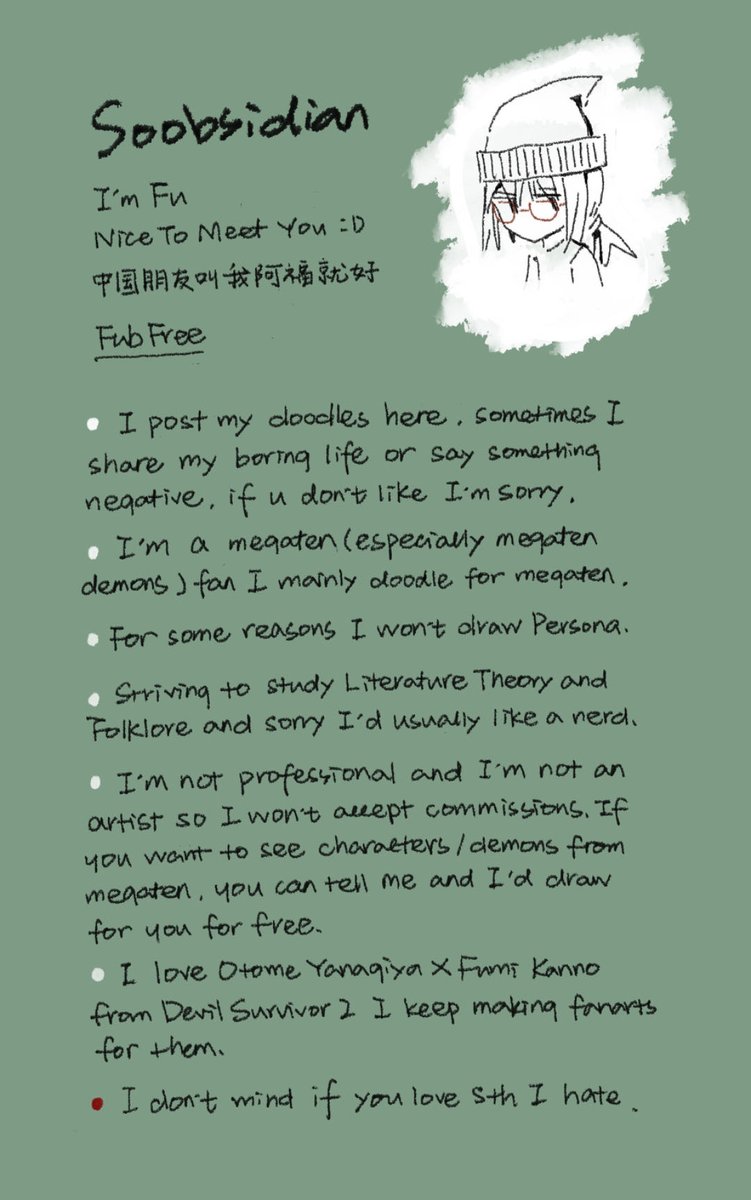 Soobsidian
I'm Fu
Nice To Meet You :D
中国朋友叫我阿福就好
Fub Free
• I post my doodles here. sometimes I
share my boring life or say something
negative, if u don't like I'm sorry.
• I'm a megaten (especially megaten
demons) fan I mainly doodle for megaten.
• For some reasons I won't draw Persona.
• Striving to study Literature Theory and
Folklore and sorry I'd usually like a nerd.
• I'm not professional and I'm not an
artist so I won't accept commissions. If
you want to see characters/demons from
megaten, you can tell me and I'd draw
for you for free.
• I love Otome Yanagiya X Fumi Kanno
from Devil Survivor 2 I keep making fanarts
for them.
• I don't mind if you love sth I hate.